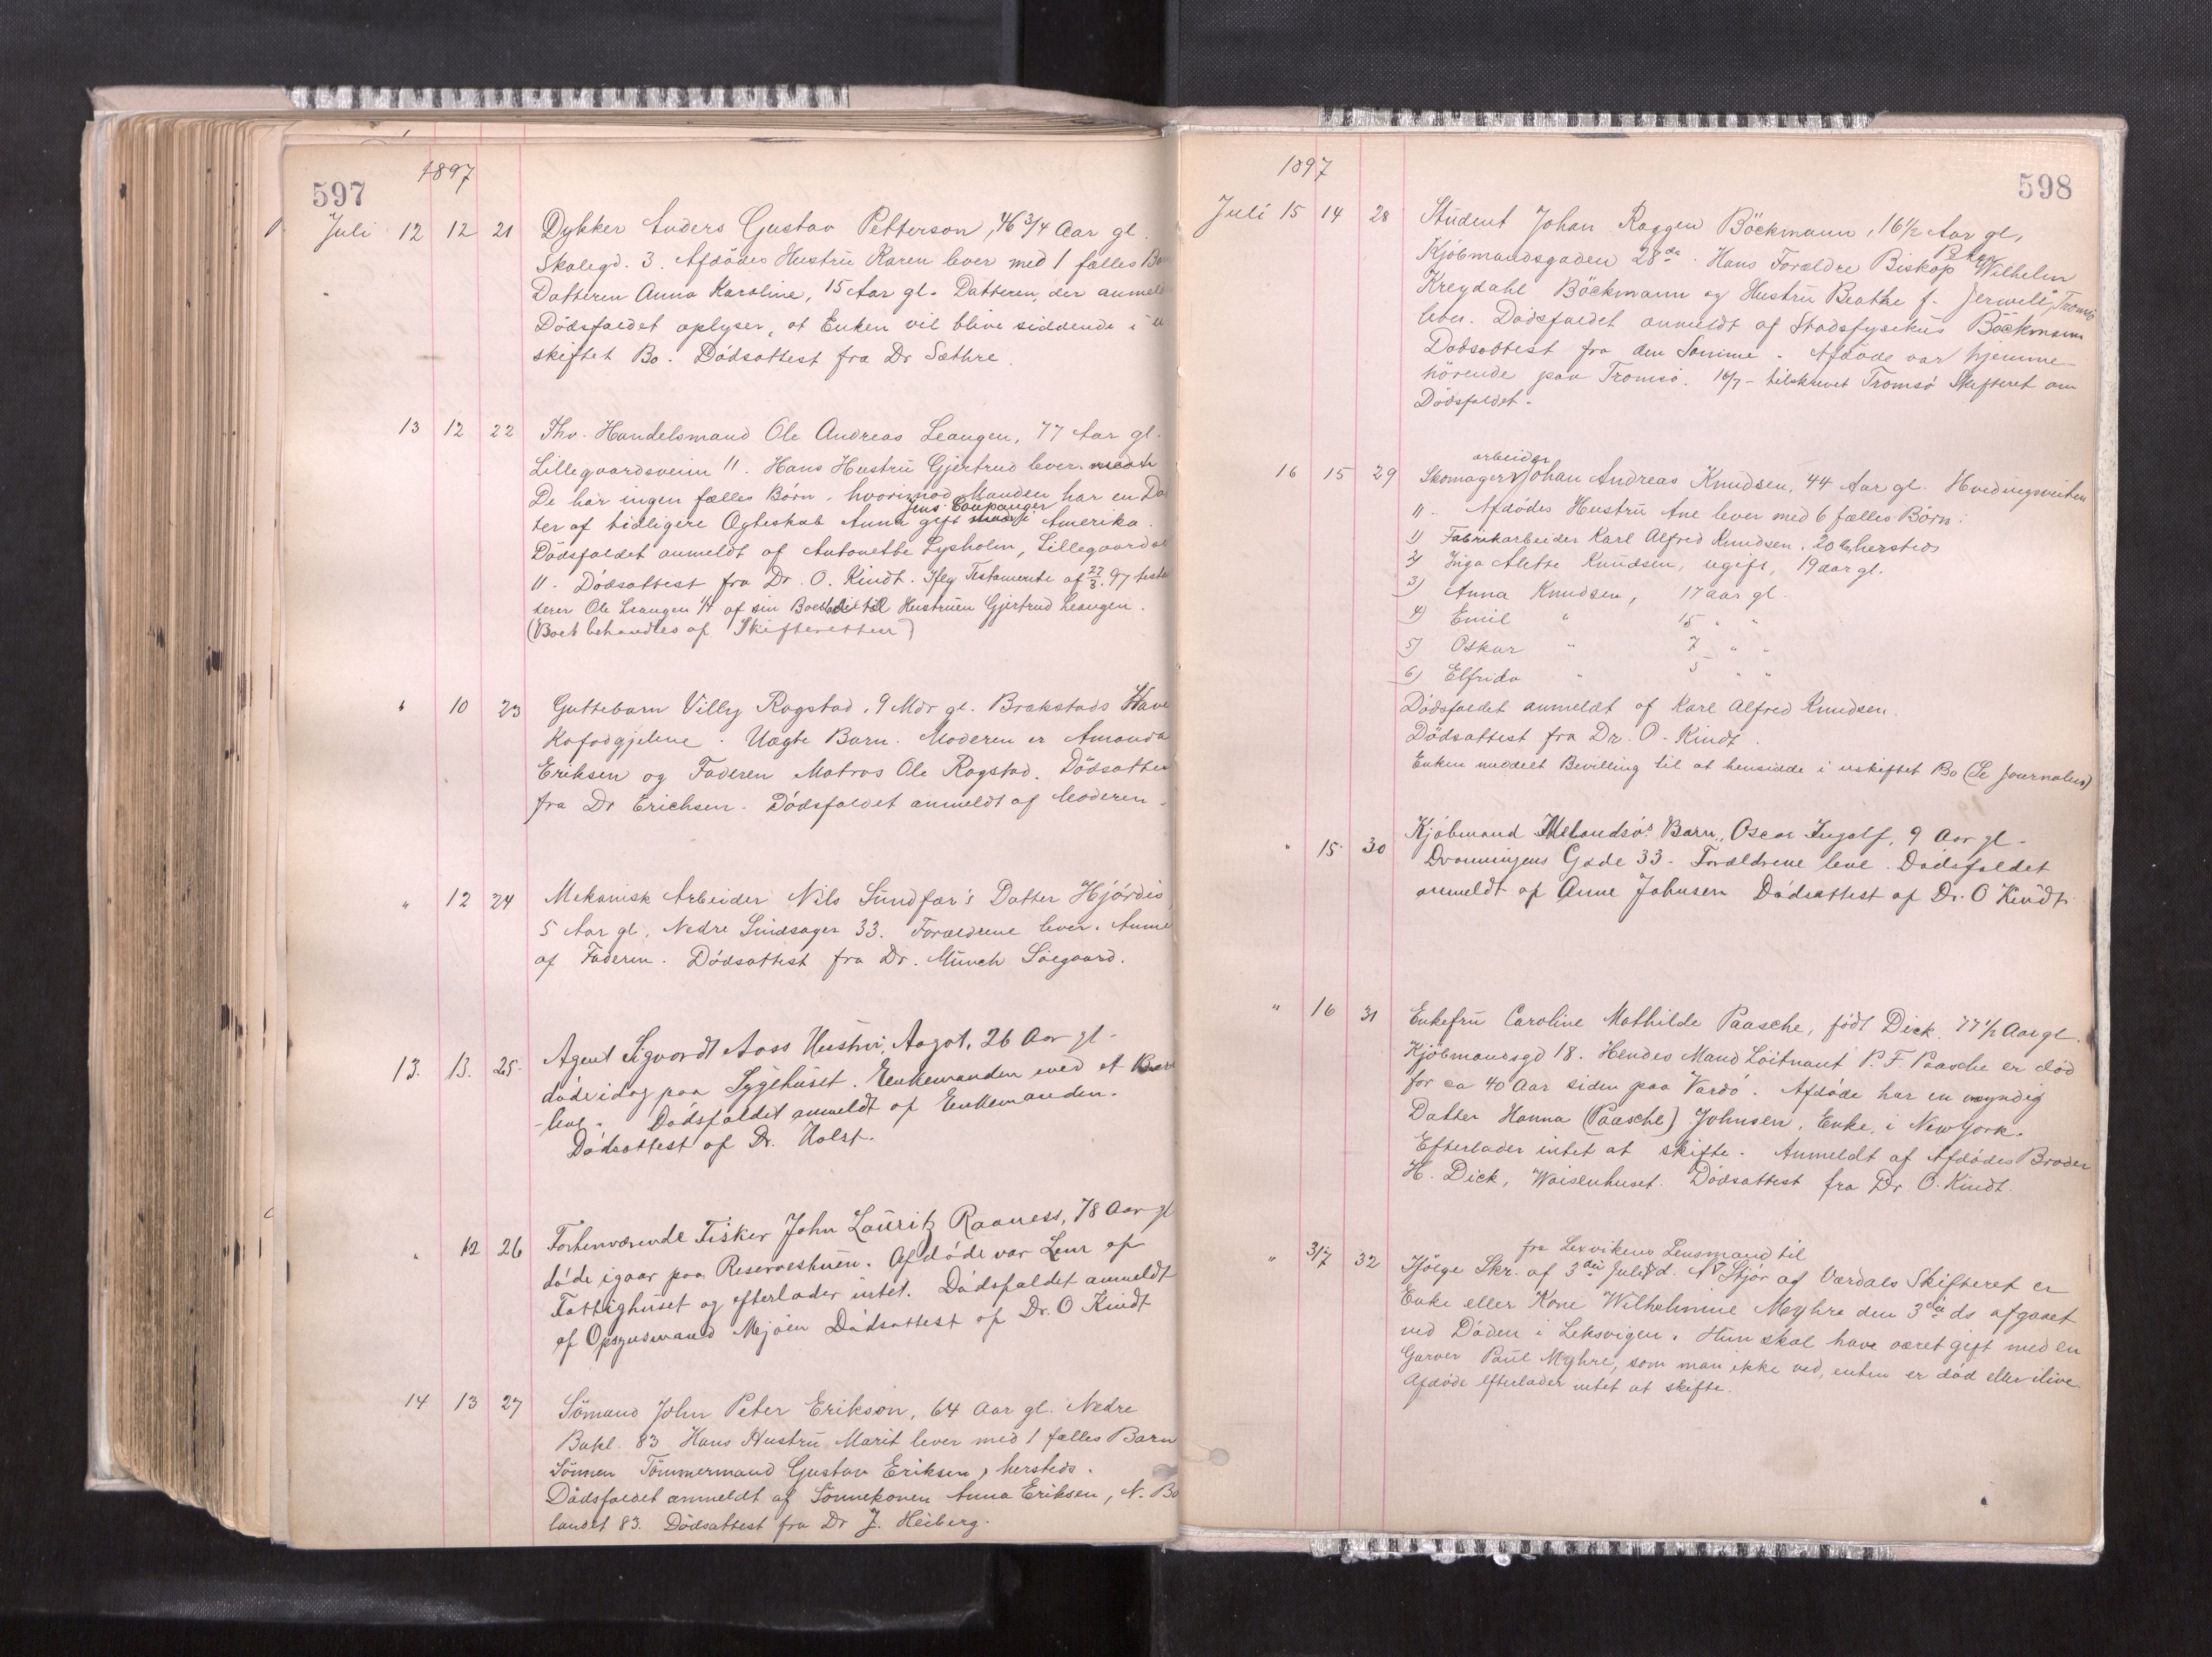 597
1897
Juli 12 12 21 Dykker Anders Gustav Petterson, 46 3/4 Aar gl.
Skolegd. 3. Afdödes Hustru Karen lever med 1 fælles Barn
Datteren Anna Karoline, 15 Aar gl. Datteren, der anmeld
Dödsfaldet oplyser, at Enken vil blive siddende i u
skiftet Bo. Dödsattest fra Dr Sæthre.
13 12 22 Fhv. Handelsmand Ole Andreas Leangen, 77 Aar gl.
Lillegaardsveien 11. Hans Hustru Gjertrud lever
De har ingen fælles Börn, hvorimod Manden har en Dat
Jens Coupanger
ter af tidligere Ægteskab Anna gift i Amerika.
Dödsfaldet anmeldt af Antonette Lysholm, Lillegaards
11. Dödsattest fra Dr. O. Kindt. Ifög Testamente af 27/3. 97 testa
terer Ole Leangen 1/4 af sin Boeslod til Hustruen Gjertrud Leangen.
(Boet behandles af Skifteretten)
" 10 23 Guttebarn Villy Rogstad, 9 Mdr gl. Brækstads Have
Kafodgjelene. Uægte Barn. Moderen er Amanda
Eriksen og Faderen Matros Ole Rogstad. Dödsattest
fra Dr Erichsen. Dödsfaldet anmeldt af Moderen.
" 12 24 Mekanisk Arbeider Nils Sundfær's Datter Hjördis,
5 Aar gl. Nedre Sindsager 33. Forældrene lever. Anme
af Faderen. Dödsattest fra Dr. Münch Söegaard.
13. 13. 25. Agent Sigvardt Aass Hustru, Aagot, 26 Aar gl.
döde idag paa Sygehuset. Enkemanden med et Barn
leve. Dödsfaldet anmeldt af Enkemanden.
Dödsattest af Dr. Holst.
" 12 26 Forhenværende Fisker John Lauritz Raaness, 78 Aar gl
döde igaar paa Reservestuen. Afdöde var Lem af
Fattighuset og efterlader intet. Dödsfaldet anmeldt
af Opsynsmand Mjöen Dödsattest af Dr. O Kindt
14 13 27 Sömand John Peter Erikson, 64 Aar gl. Nedre
Bakl. 83 Hans Hustru Marit lever med 1 fælles Barn
Sönnen Tömmermand Gustav Eriksen, hersteds.
Dödsfaldet anmeldt af Sönnekonen Anna Eriksen, N. Ba
landet 83. Dödsattest fra Dr J. Heiberg.
598
1897
Juli 15 14 28 Student Johan Roggen Böckmann, 16 1/2 Aar gl,
Kjöbmandsgaden 28de. Hans Forældre Biskop Peter Wilhelm
Kreydahl Böckmann og Hustru Beathe f. Jerwell, Tromsö
lever. Dödsfaldet anmeldt af Stadsfysikus Böckmann
Dödsattest fra den Samme. Afdöde var hjemme-
hörende paa Tromsö. 16/7 - tilskrevet Tromsö Skifteret om
Dödsfaldet.
arbeider
16 15 29 Skomager Johan Andreas Knudsen, 44 Aar gl. Hvedingsveiten
11. Afdödes Hustru Ane lever med 6 fælles Börn:
1) Fabrikarbeider Karl Alfred Knudsen, 20 hersteds
2) Inga Alette Knudsen, ugift, 19 aar gl.
3) Anna Knudsen, 17 aar gl.
4) Emil " 15 " "
5) Oskar " 7 " "
6) Elfrida " 5 " "
Dödsfaldet anmeldt af Karl Alfred Knudsen.
Dödsattest fra Dr. O. Kindt.
Enken meddelt Bevilling til at hensidde i uskiftet Bo (Se Journalen)
" 15 30 Kjöbmand Melandsö's Barn, Oscar Ingolf, 9 Aar gl.
Dronningens Gade 33. Forældrene leve. Dödsfaldet
anmeldt af Anne Johnsen Dödsattest af Dr. O Kindt.
" 16 31 Enkefru Caroline Mathilde Paasche, födt Dick. 77 1/2 Aar gl.
Kjöbmandsgd 18. Hendes Mand Löitnant P. F. Paasche er död
for ca 40 Aar siden paa Vardö. Afdöde har en myndig
Datter Hanna (Paasche) Johnsen, Enke, i New York.
Efterlader intet at skifte. Anmeldt af Afdödes Broder
H. Dick, Waisenhuset. Dödsattest fra Dr O. Kindt.
fra Lexvikens Lensmand til
" 3/7 32 Ifölge Skr. af 3die Juli d. A Stjör og Værdals Skifteret er
Enke eller Kone Wilhelmine Myhre den 3die ds afgaaet
ved Döden i Leksvigen. Hun skal have været gift med en
Garver Paul Myhre, som man ikke ved, enten er död eller ilive.
Afdöde efterlader intet at skifte.